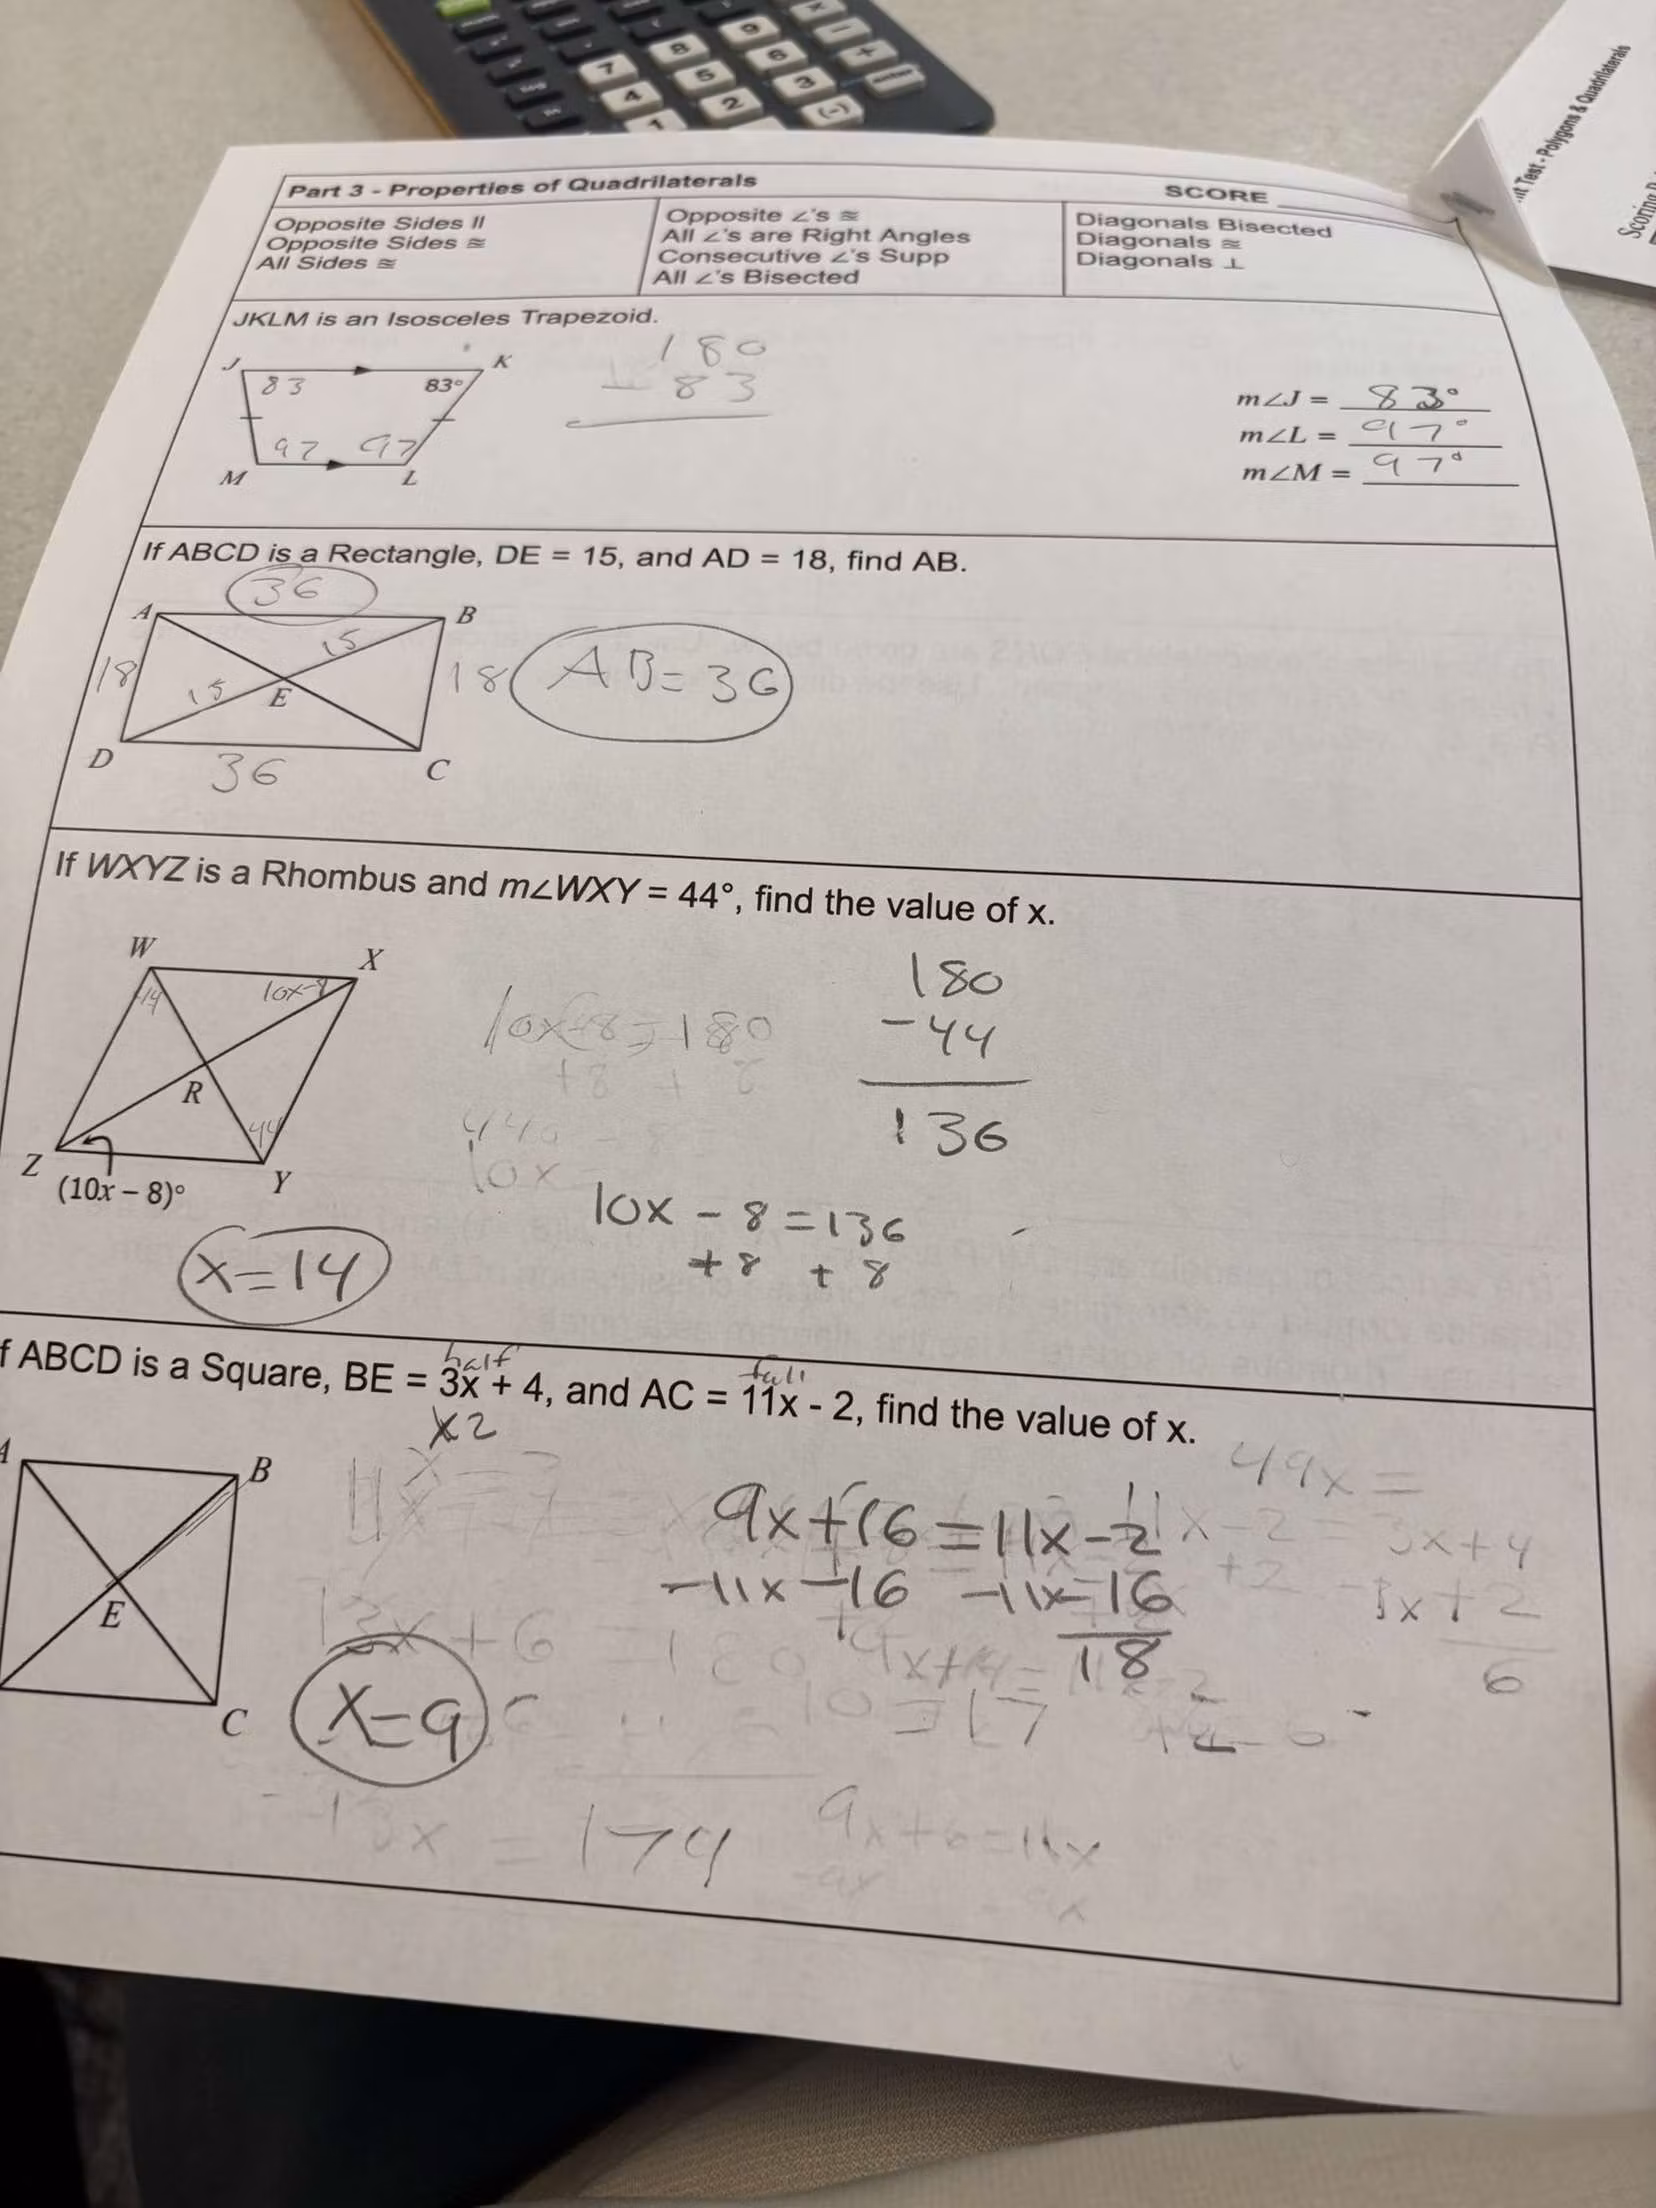 Part 3 - Properties of Quadrilaterals
SCORE
Opposite Sides ||
Opposite Sides ≅
All Sides ≅
Opposite ∠'s ≅
All ∠'s are Right Angles
Consecutive ∠'s Supp
All ∠'s Bisected
Diagonals Bisected
Diagonals ≅
Diagonals ⊥
JKLM is an Isosceles Trapezoid.
J
K
83
83°
97
97
M
L
180
- 83
m∠J = 83°
m∠L = 97°
m∠M = 97°
If ABCD is a Rectangle, DE = 15, and AD = 18, find AB.
36
A
B
18
15
15
E
18
AB = 36
D
36
C
If WXYZ is a Rhombus and m∠WXY = 44°, find the value of x.
W
X
44
10x-8
R
44
Z
Y
(10x – 8)°
10x-8=180
+8 + 8
10x
180
-44
136
10x - 8 = 136
+8 + 8
x=14
f ABCD is a Square, BE = 3x + 4, and AC = 11x - 2, find the value of x.
half
full
x2
A
B
E
C
9x+16 = 11x-2
-11x-16 -11x-16
18
x=9
49x =
11x-2 = 3x+4
+2
6
13x + 6 = 180
9x+4=11x-2
=17
-13x = 174
9x+6=11x
-9x -9x
it Test - Polygons & Quadrilaterals
Scoring
7 8 9
4 5 6
1 2 3
(-)
enter